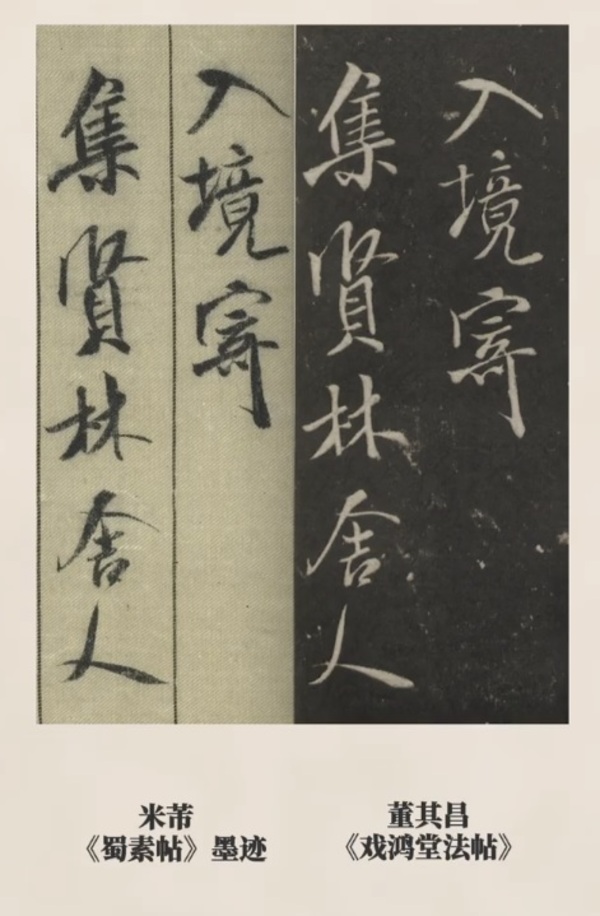 入境寄
集賢林舍人
入境寄
集賢林舍人
米芾
《蜀素帖》墨迹
董其昌
《戏鸿堂法帖》